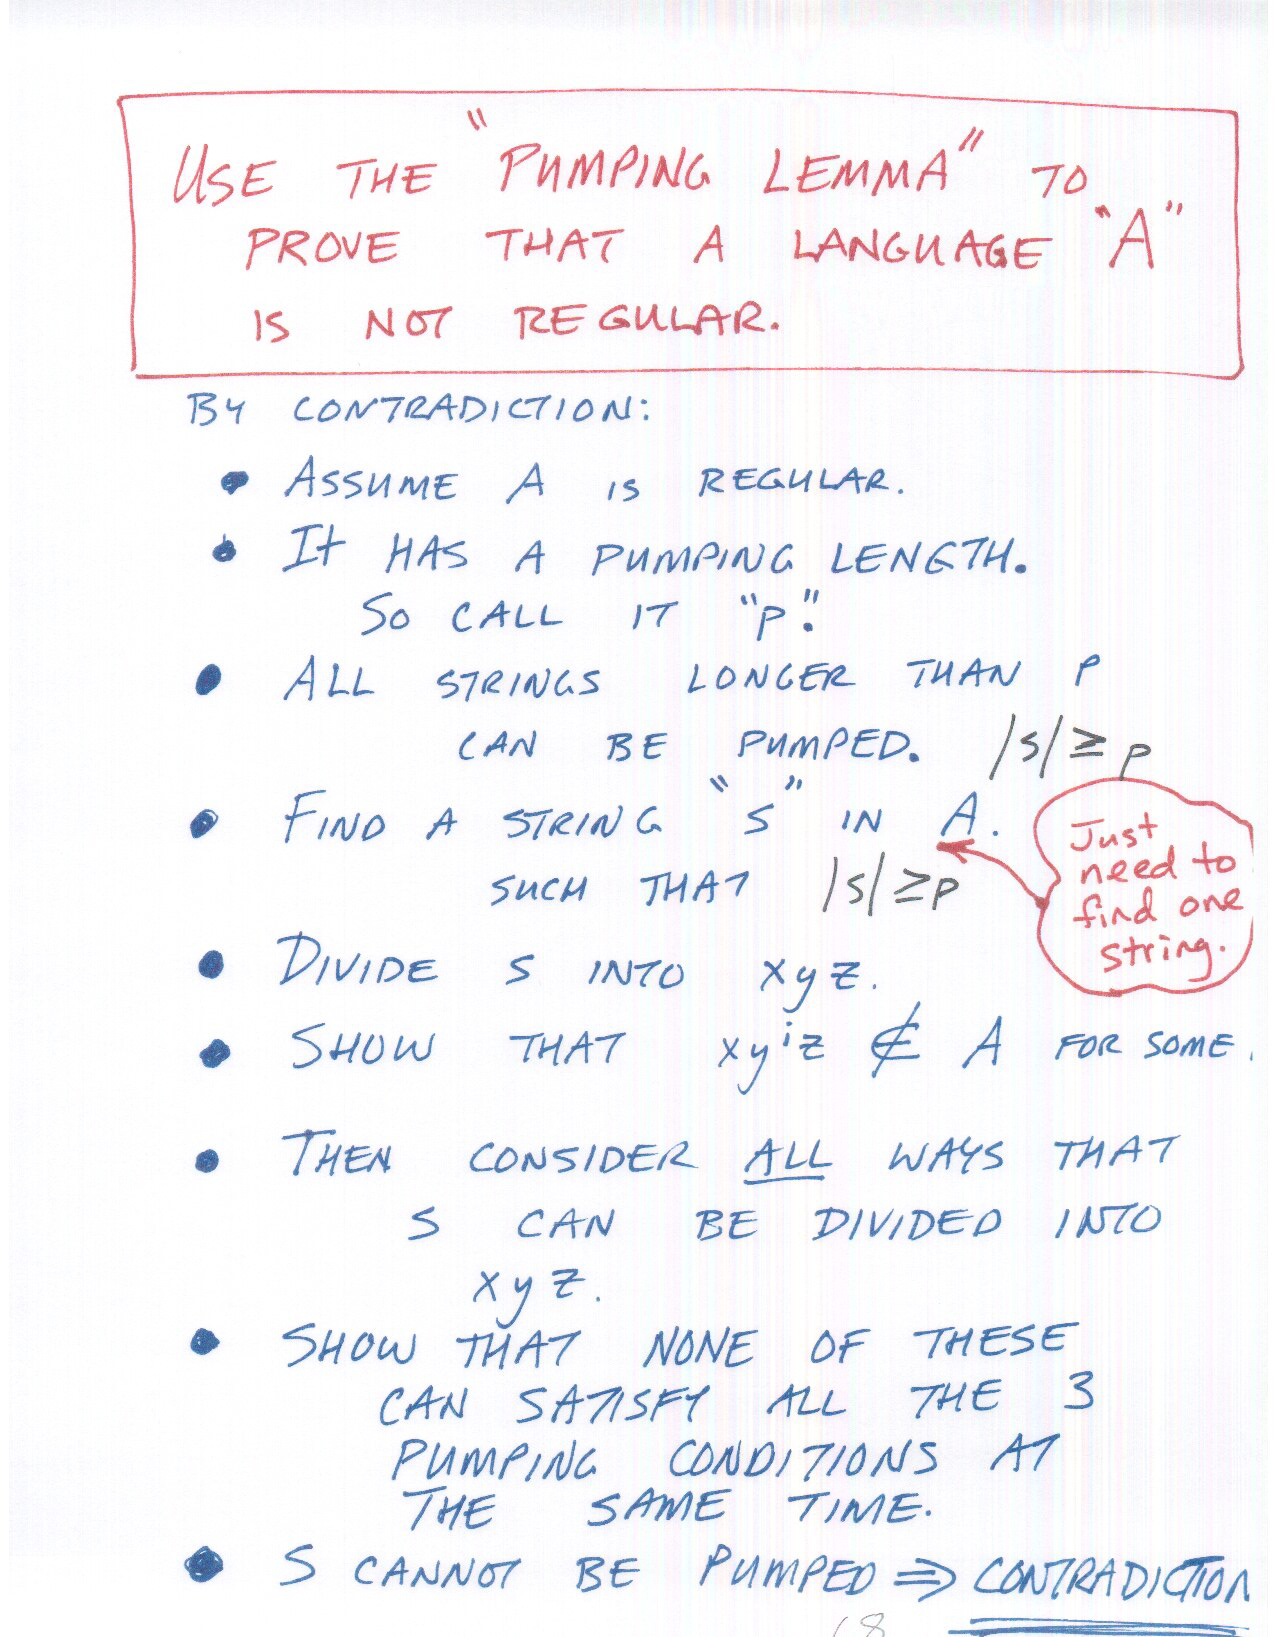 USE THE "PUMPING LEMMA" TO
PROVE THAT A LANGUAGE "A"
IS NOT REGULAR.
BY CONTRADICTION:
• ASSUME A IS REGULAR.
• It HAS A PUMPING LENGTH.
SO CALL IT "P".
• ALL STRINGS LONGER THAN P
CAN BE PUMPED. |s| ≥ p
• FIND A STRING "S" IN A.
SUCH THAT |s| ≥ p
Just
need to
find one
string.
• DIVIDE S INTO xyz.
• SHOW THAT xyⁱz ∉ A FOR SOME
• THEN CONSIDER ALL WAYS THAT
S CAN BE DIVIDED INTO
xyz.
• SHOW THAT NONE OF THESE
CAN SATISFY ALL THE 3
PUMPING CONDITIONS AT
THE SAME TIME.
• S CANNOT BE PUMPED ⇒ CONTRADICTION